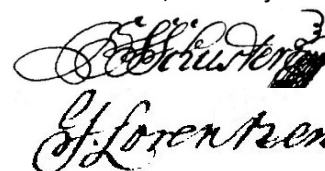 Schuster
G. Lorentzen